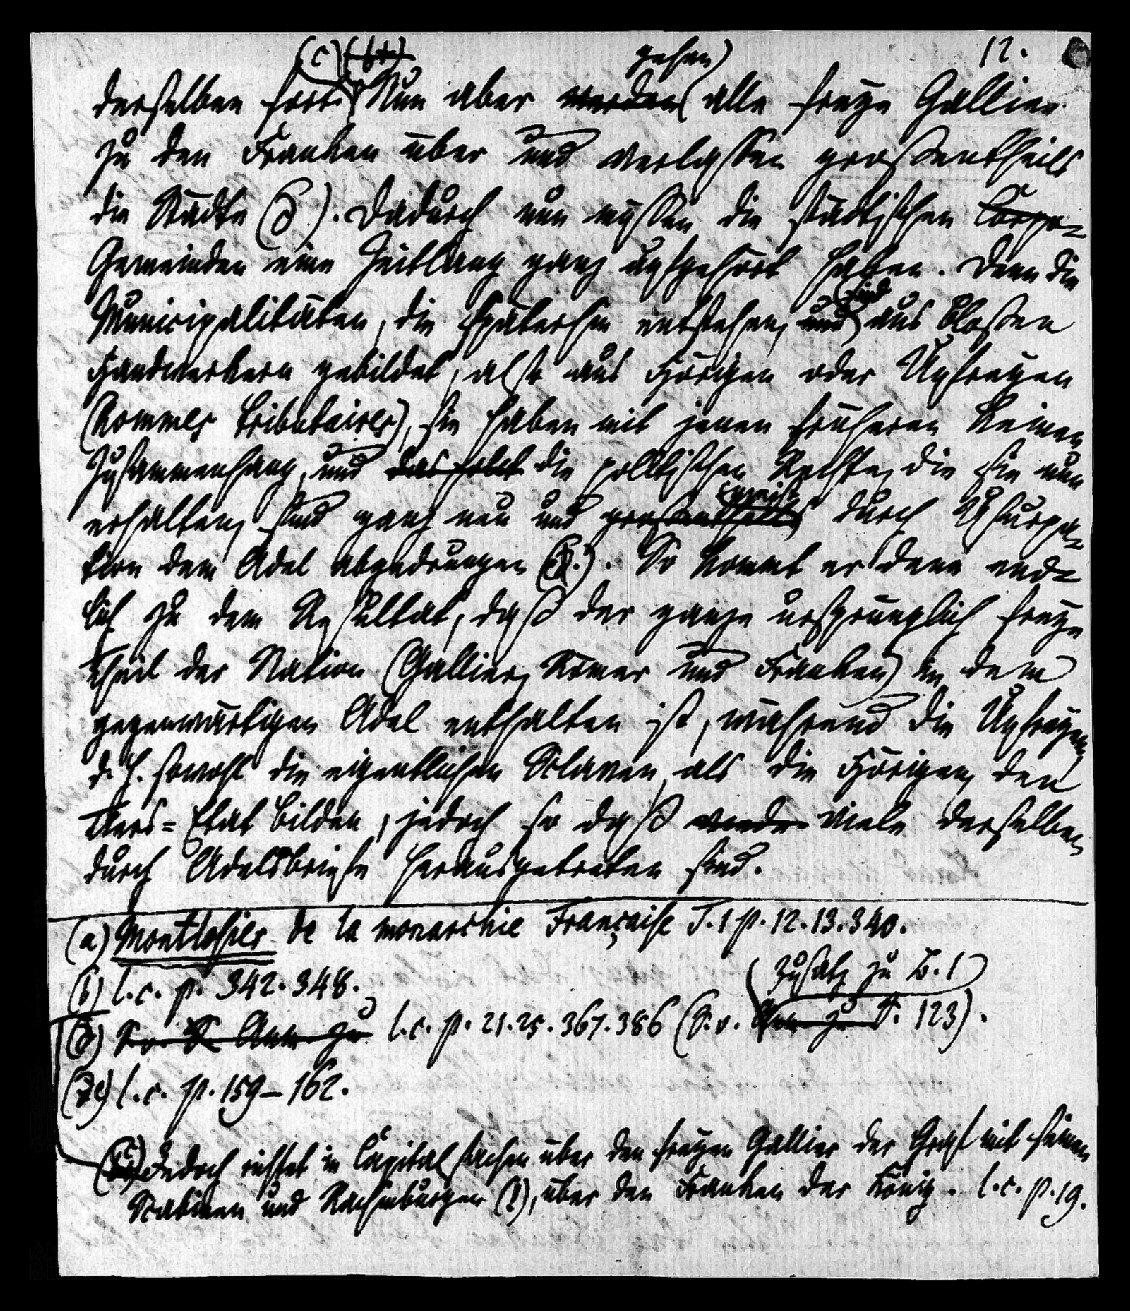 12.
(c) (b1) gehen
derselben fort. Nun aber werden alle freye Gallier
zu den Franken über und verlassen großentheils
die Städte (d). Dadurch nun müssen die städtischen Corpo-
Gemeinden eine Zeitlang ganz aufgehört haben. Denn die
Municipalitäten, die späterhin entstehen, und sind aus bloßen
Handwerkern gebildet, also aus Hörigen oder Unfreyen
(hommes tributaires), sie haben mit jenen früheren keinen
Zusammenhang, und das folgt die politischen Rechte, die sie nun
erhalten, sind ganz neu und großentheils durch Usurpa-
tion dem Adel abgedrungen (e). So kommt er denn end-
lich zu dem Resultat, daß der ganze ursprünglich freye
Theil der Nation (Gallier, Römer und Franken) in dem
gegenwärtigen Adel enthalten ist, während die Unfreyen
d. h. sowohl die eigentlichen Sclaven, als die Hörigen, den
Tiers-Etat bilden, jedoch so daß viele derselben
durch Adelsbriefe herausgetreten sind.
(a) Montlosier de la monarchie Française T. 1 p. 12. 13. 340.
(b) l. c. p. 342. 348.
Zusatz zu B. 1
(d) l. c. p. 21. 25. 367. 386 (S. v. S. 123).
(e) l. c. p. 159–162.
(c) Jedoch richtet in Capitalsachen über den freyen Gallier der Graf mit seinen
Scabinen und Rachinburgen (!), über den Franken der König. l. c. p. 19.